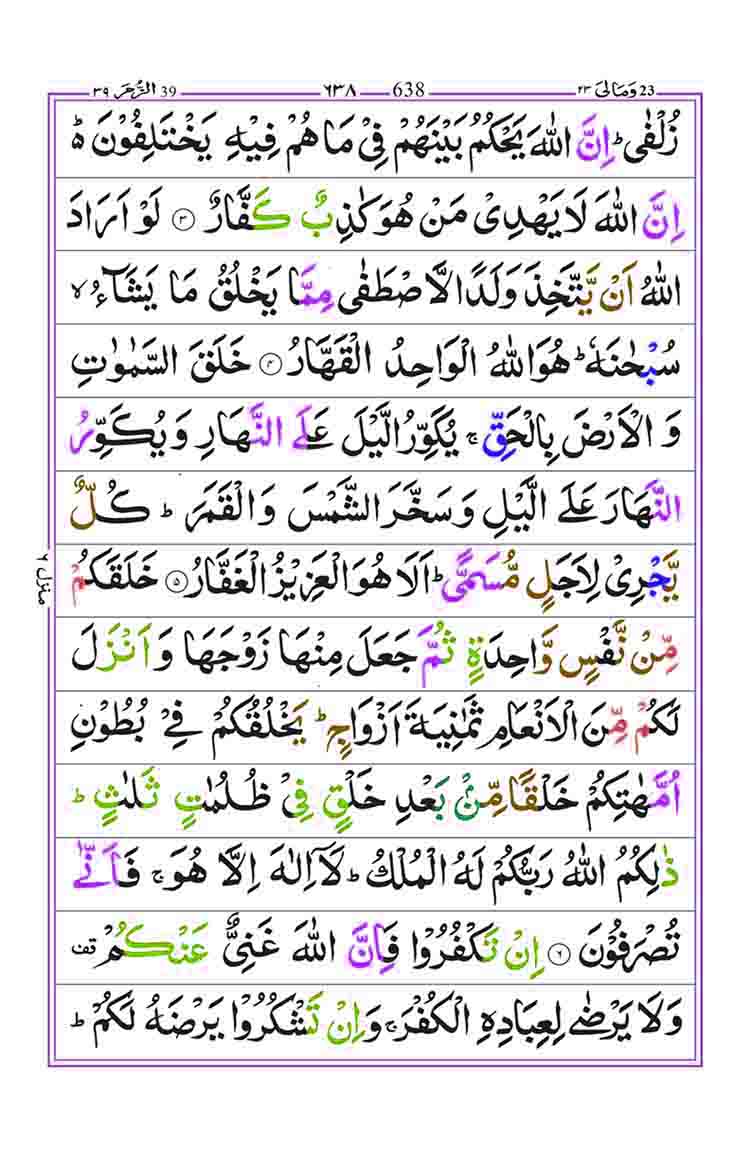 ۲۳ وَمَالِىَ 23 ٦٣٨ 638 ۳۹ اَلزُّمَر 39
زُلْفٰى ؕ اِنَّ اللّٰهَ يَحْكُمُ بَيْنَهُمْ فِىْ مَا هُمْ فِيْهِ يَخْتَلِفُوْنَ ؕ
اِنَّ اللّٰهَ لَا يَهْدِىْ مَنْ هُوَ كٰذِبٌ كَفَّارٌ ۝۳ لَوْ اَرَادَ
اللّٰهُ اَنْ يَّتَّخِذَ وَلَدًا لَّاصْطَفٰى مِمَّا يَخْلُقُ مَا يَشَآءُ ۙ
سُبْحٰنَهٗ ؕ هُوَ اللّٰهُ الْوَاحِدُ الْقَهَّارُ ۝۴ خَلَقَ السَّمٰوٰتِ
وَ الْاَرْضَ بِالْحَقِّ ۚ يُكَوِّرُ الَّيْلَ عَلَى النَّهَارِ وَيُكَوِّرُ
النَّهَارَ عَلَى الَّيْلِ وَسَخَّرَ الشَّمْسَ وَالْقَمَرَ ؕ كُلٌّ
يَّجْرِىْ لِاَجَلٍ مُّسَمًّى ؕ اَلَا هُوَ الْعَزِيْزُ الْغَفَّارُ ۝۵ خَلَقَكُمْ
مِّنْ نَّفْسٍ وَّاحِدَةٍ ثُمَّ جَعَلَ مِنْهَا زَوْجَهَا وَ اَنْزَلَ
لَكُمْ مِّنَ الْاَنْعَامِ ثَمٰنِيَةَ اَزْوَاجٍ ؕ يَخْلُقُكُمْ فِىْ بُطُوْنِ
اُمَّهٰتِكُمْ خَلْقًا مِّنْۢ بَعْدِ خَلْقٍ فِىْ ظُلُمٰتٍ ثَلٰثٍ ؕ
ذٰلِكُمُ اللّٰهُ رَبُّكُمْ لَهُ الْمُلْكُ ؕ لَاۤ اِلٰهَ اِلَّا هُوَ ۚ فَاَنّٰى
تُصْرَفُوْنَ ۝۶ اِنْ تَكْفُرُوْا فَاِنَّ اللّٰهَ غَنِىٌّ عَنْكُمْ قف
وَلَا يَرْضٰى لِعِبَادِهِ الْكُفْرَ ۚ وَاِنْ تَشْكُرُوْا يَرْضَهُ لَكُمْ ؕ
منزل ۶